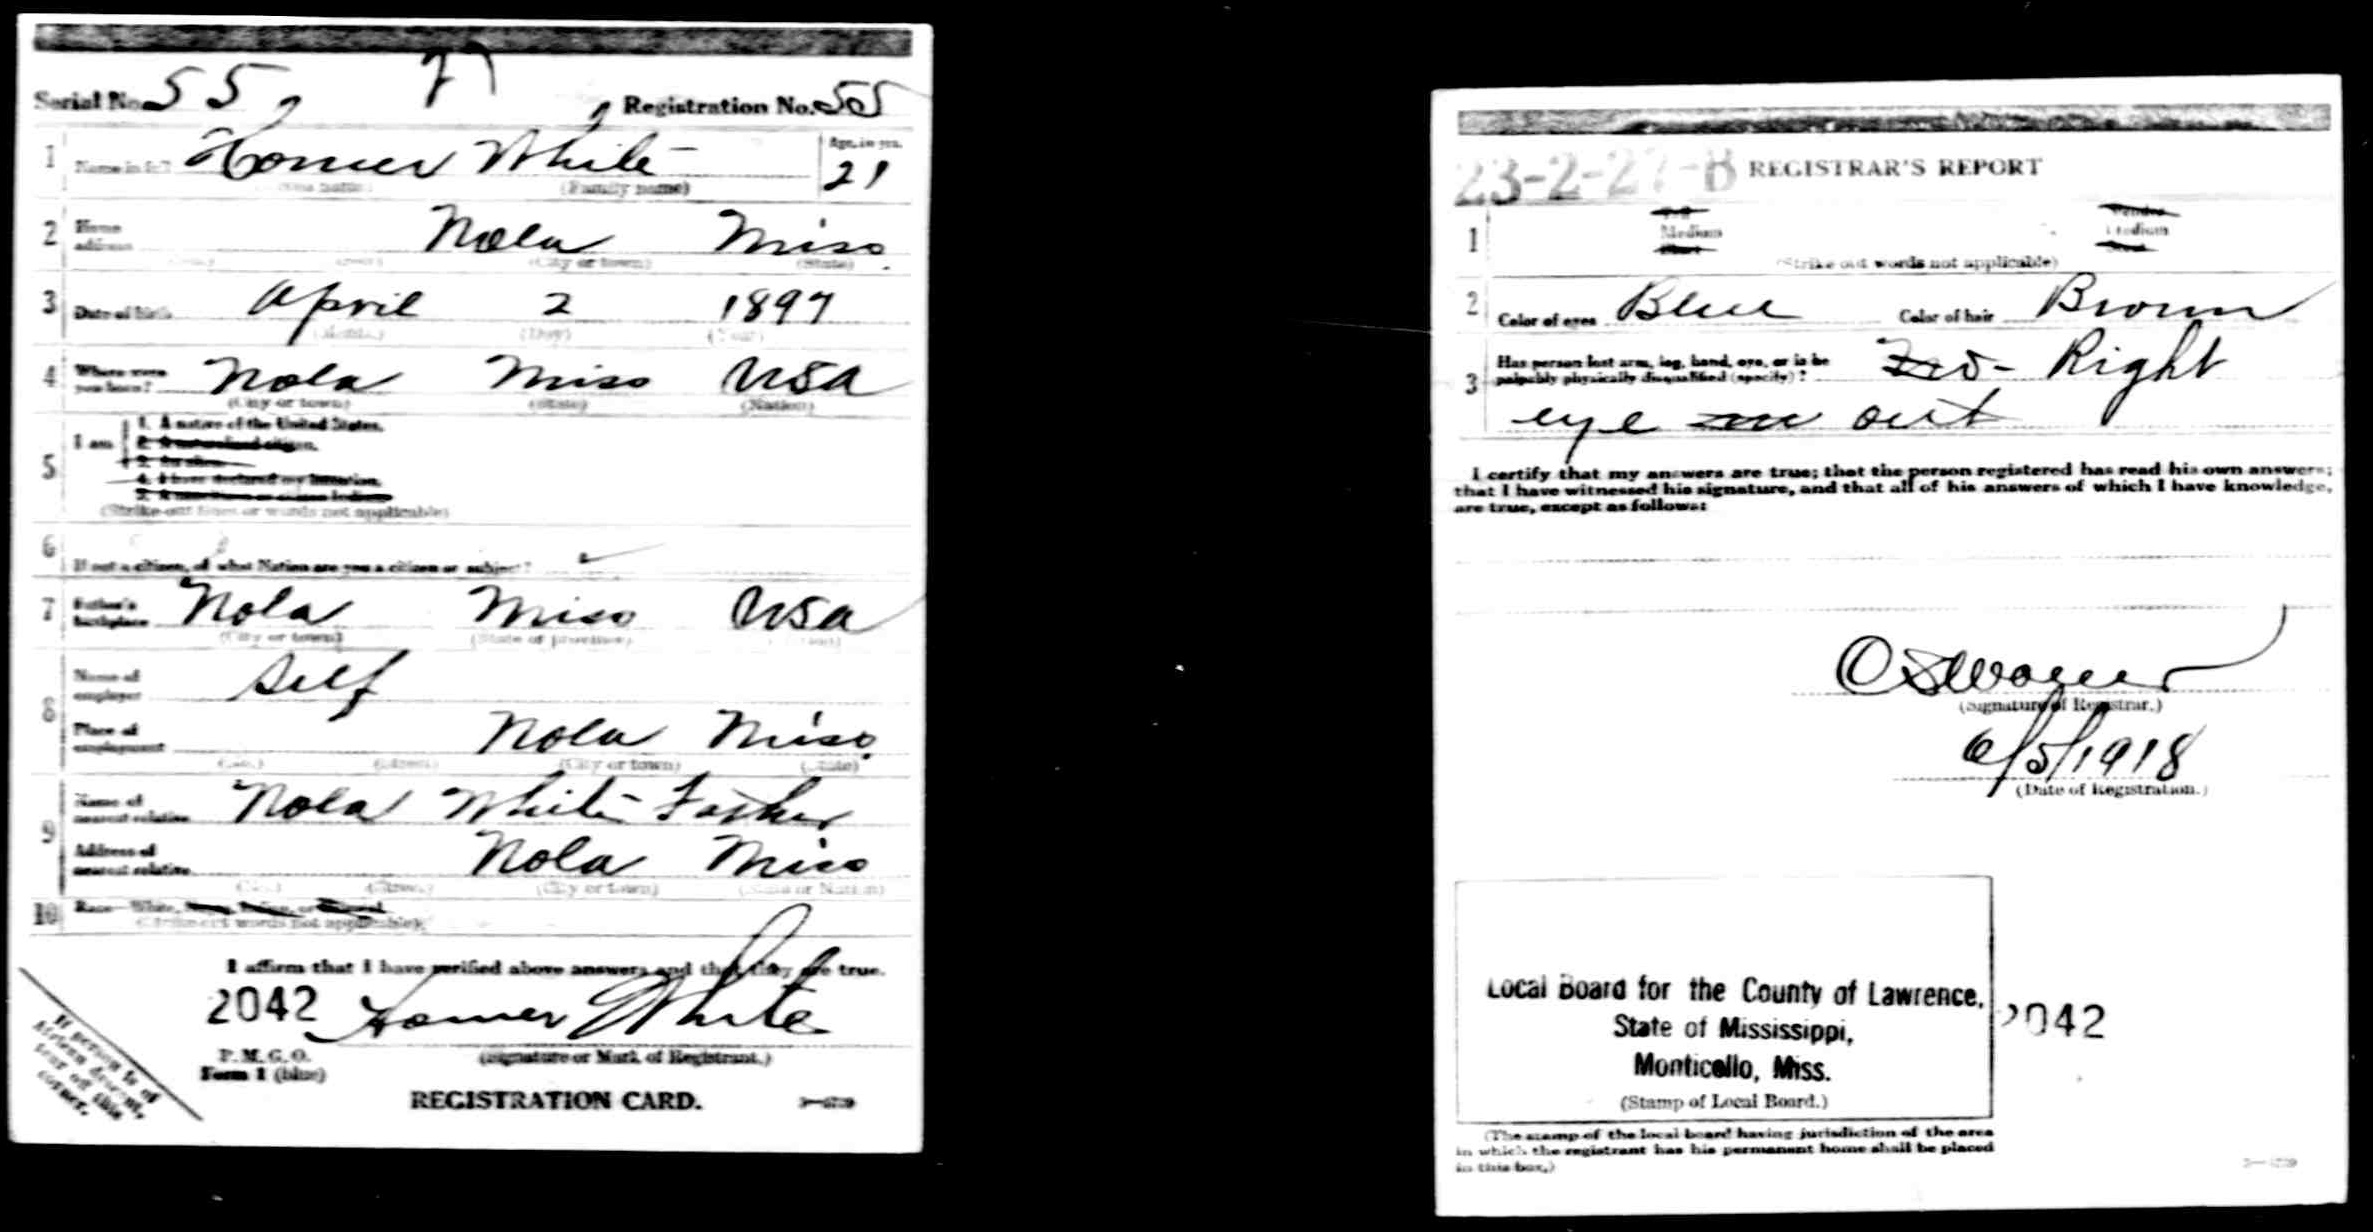 Serial No. 55 Registration No. 55
1 Name in full Homer White Age, in yrs. 21
(Family name)
2 Home address Nola Miss.
(City or town) (State)
3 Date of birth April 2 1897
(Month) (Day) (Year)
4 Where were you born? Nola Miss USA
(City or town) (State) (Nation)
5 I am
1. A native of the United States.
2. A naturalized citizen.
3. An alien.
4. I have declared my intention.
5.
(Strike out lines or words not applicable)
6 If not a citizen, of what Nation are you a citizen or subject?
7 Father's birthplace Nola Miss USA
(City or town) (State or province)
8 Name of employer Self
Place of employment Nola Miss.
(No.) (Street) (City or town) (State)
9 Name of nearest relative Nola White Father
Address of nearest relative Nola Miss
(No.) (Street) (City or town) (State or Nation)
10 Race—White, or
(Strike out words not applicable)
I affirm that I have verified above answers and that they are true.
2042 Homer White
P. M. G. O.
Form 1 (blue)
(Signature or Mark of Registrant.)
REGISTRATION CARD.
If person is of
African descent,
tear off this
corner.
23-2-27-B REGISTRAR'S REPORT
1 Medium Medium
(Strike out words not applicable)
2 Color of eyes Blue Color of hair Brown
3 Has person lost arm, leg, hand, eye, or is he
palpably physically disqualified (specify)? No - Right
eye out
I certify that my answers are true; that the person registered has read his own answers;
that I have witnessed his signature, and that all of his answers of which I have knowledge,
are true, except as follows:
(Signature of Registrar.)
6/5/1918
(Date of Registration.)
Local Board for the County of Lawrence,
State of Mississippi,
Monticello, Miss.
(Stamp of Local Board.)
2042
(The stamp of the local board having jurisdiction of the area
in which the registrant has his permanent home shall be placed
in this box.)